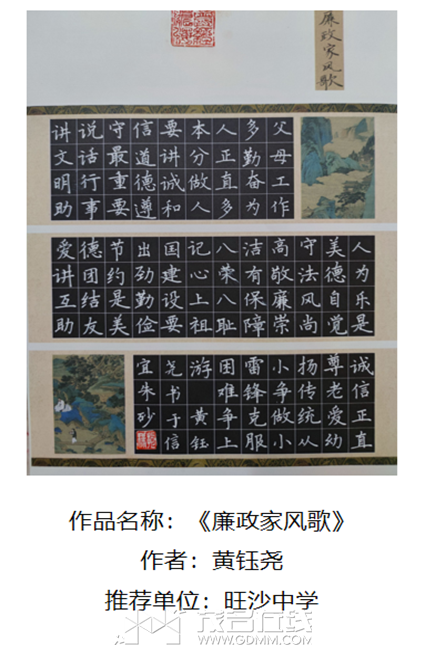 廉政家风歌
父母工作
多勤奋为
人正直多
本分做人
要讲诚和
信道德遵
守最重要
说话行事
讲文明助
人为乐是
美德自觉
守法风尚
高敬廉崇
洁有保障
八荣八耻
记心上祖
国建设要
出劲勤俭
节约是美
德团结友
爱讲互助
诚信正直
尊老爱幼
扬传统从
小争做小
雷锋克服
困难争上
游黄钰
尧书于信
宜朱砂
作品名称：《廉政家风歌》
作者：黄钰尧
推荐单位：旺沙中学
茂名在线
WWW.GDMM.COM